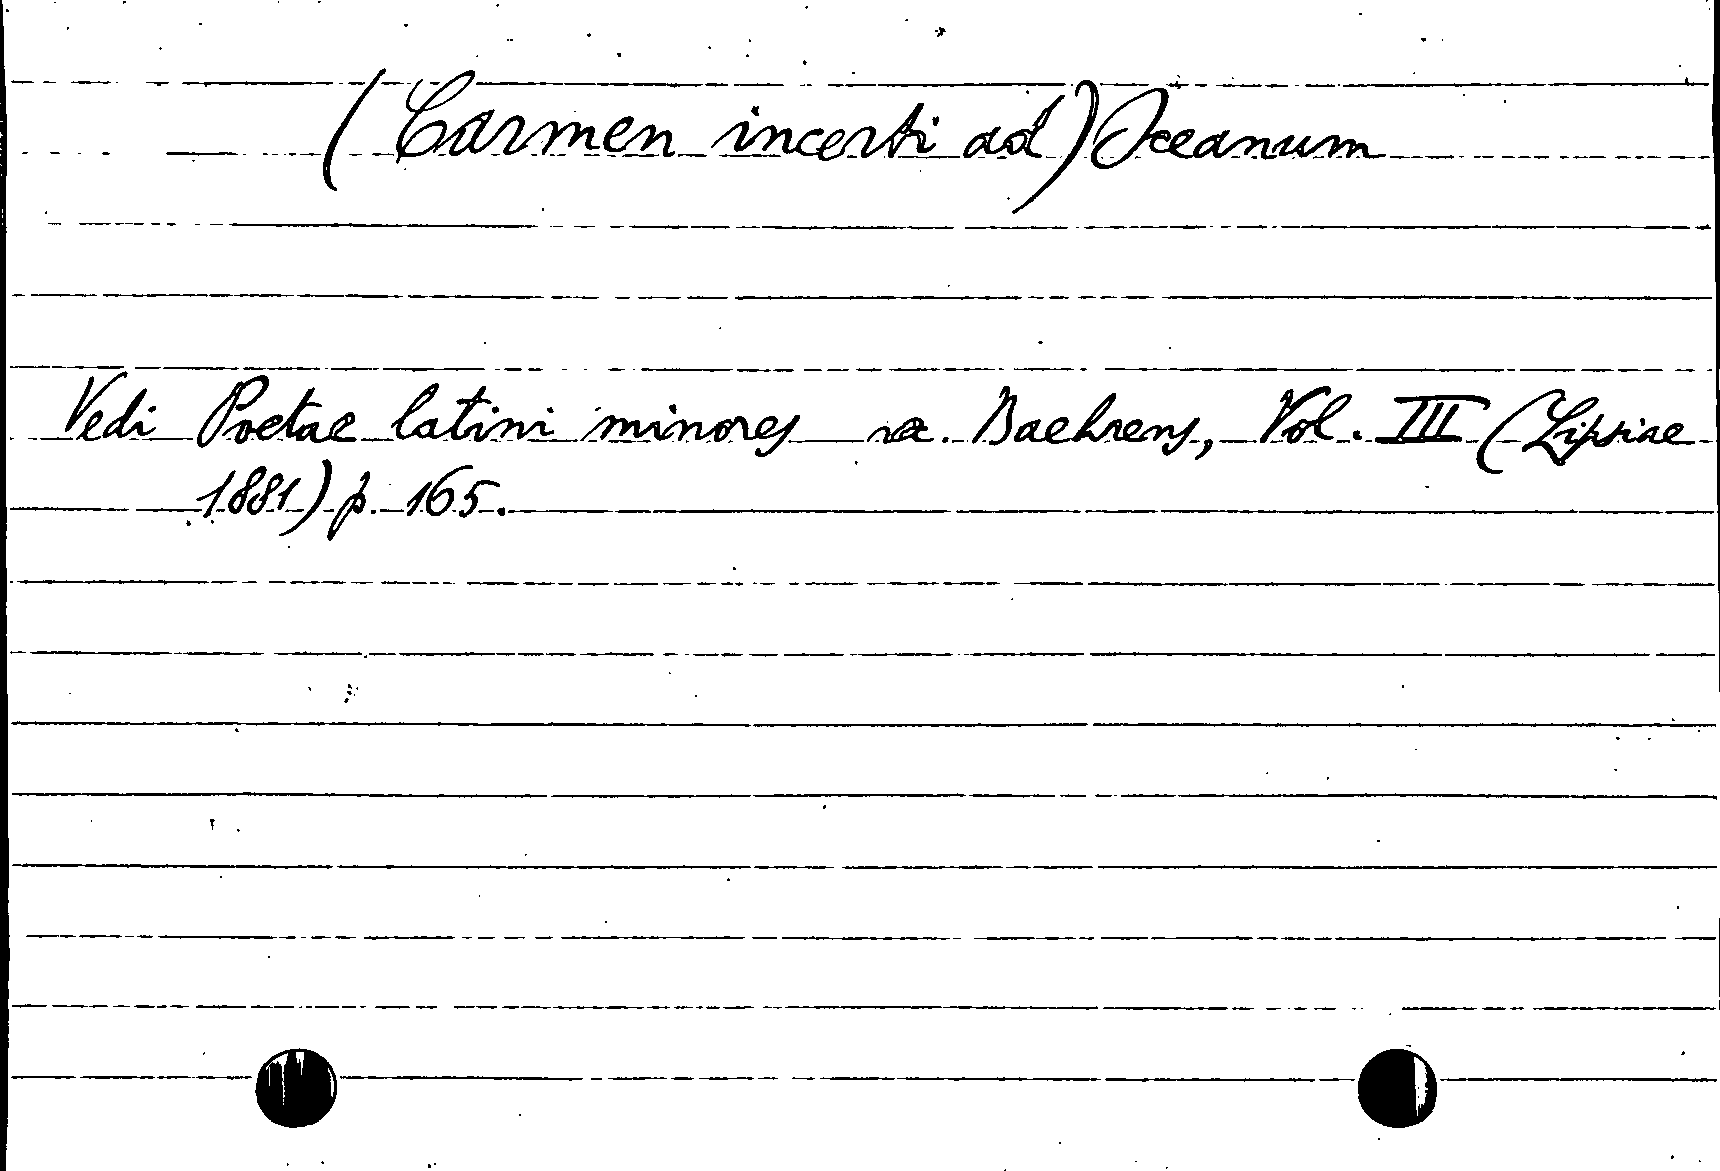 (Carmen incerti ad) Oceanum
Vedi Poetae latini minores rec. Baehrens, Vol. III (Lipsiae
1881) p. 165.